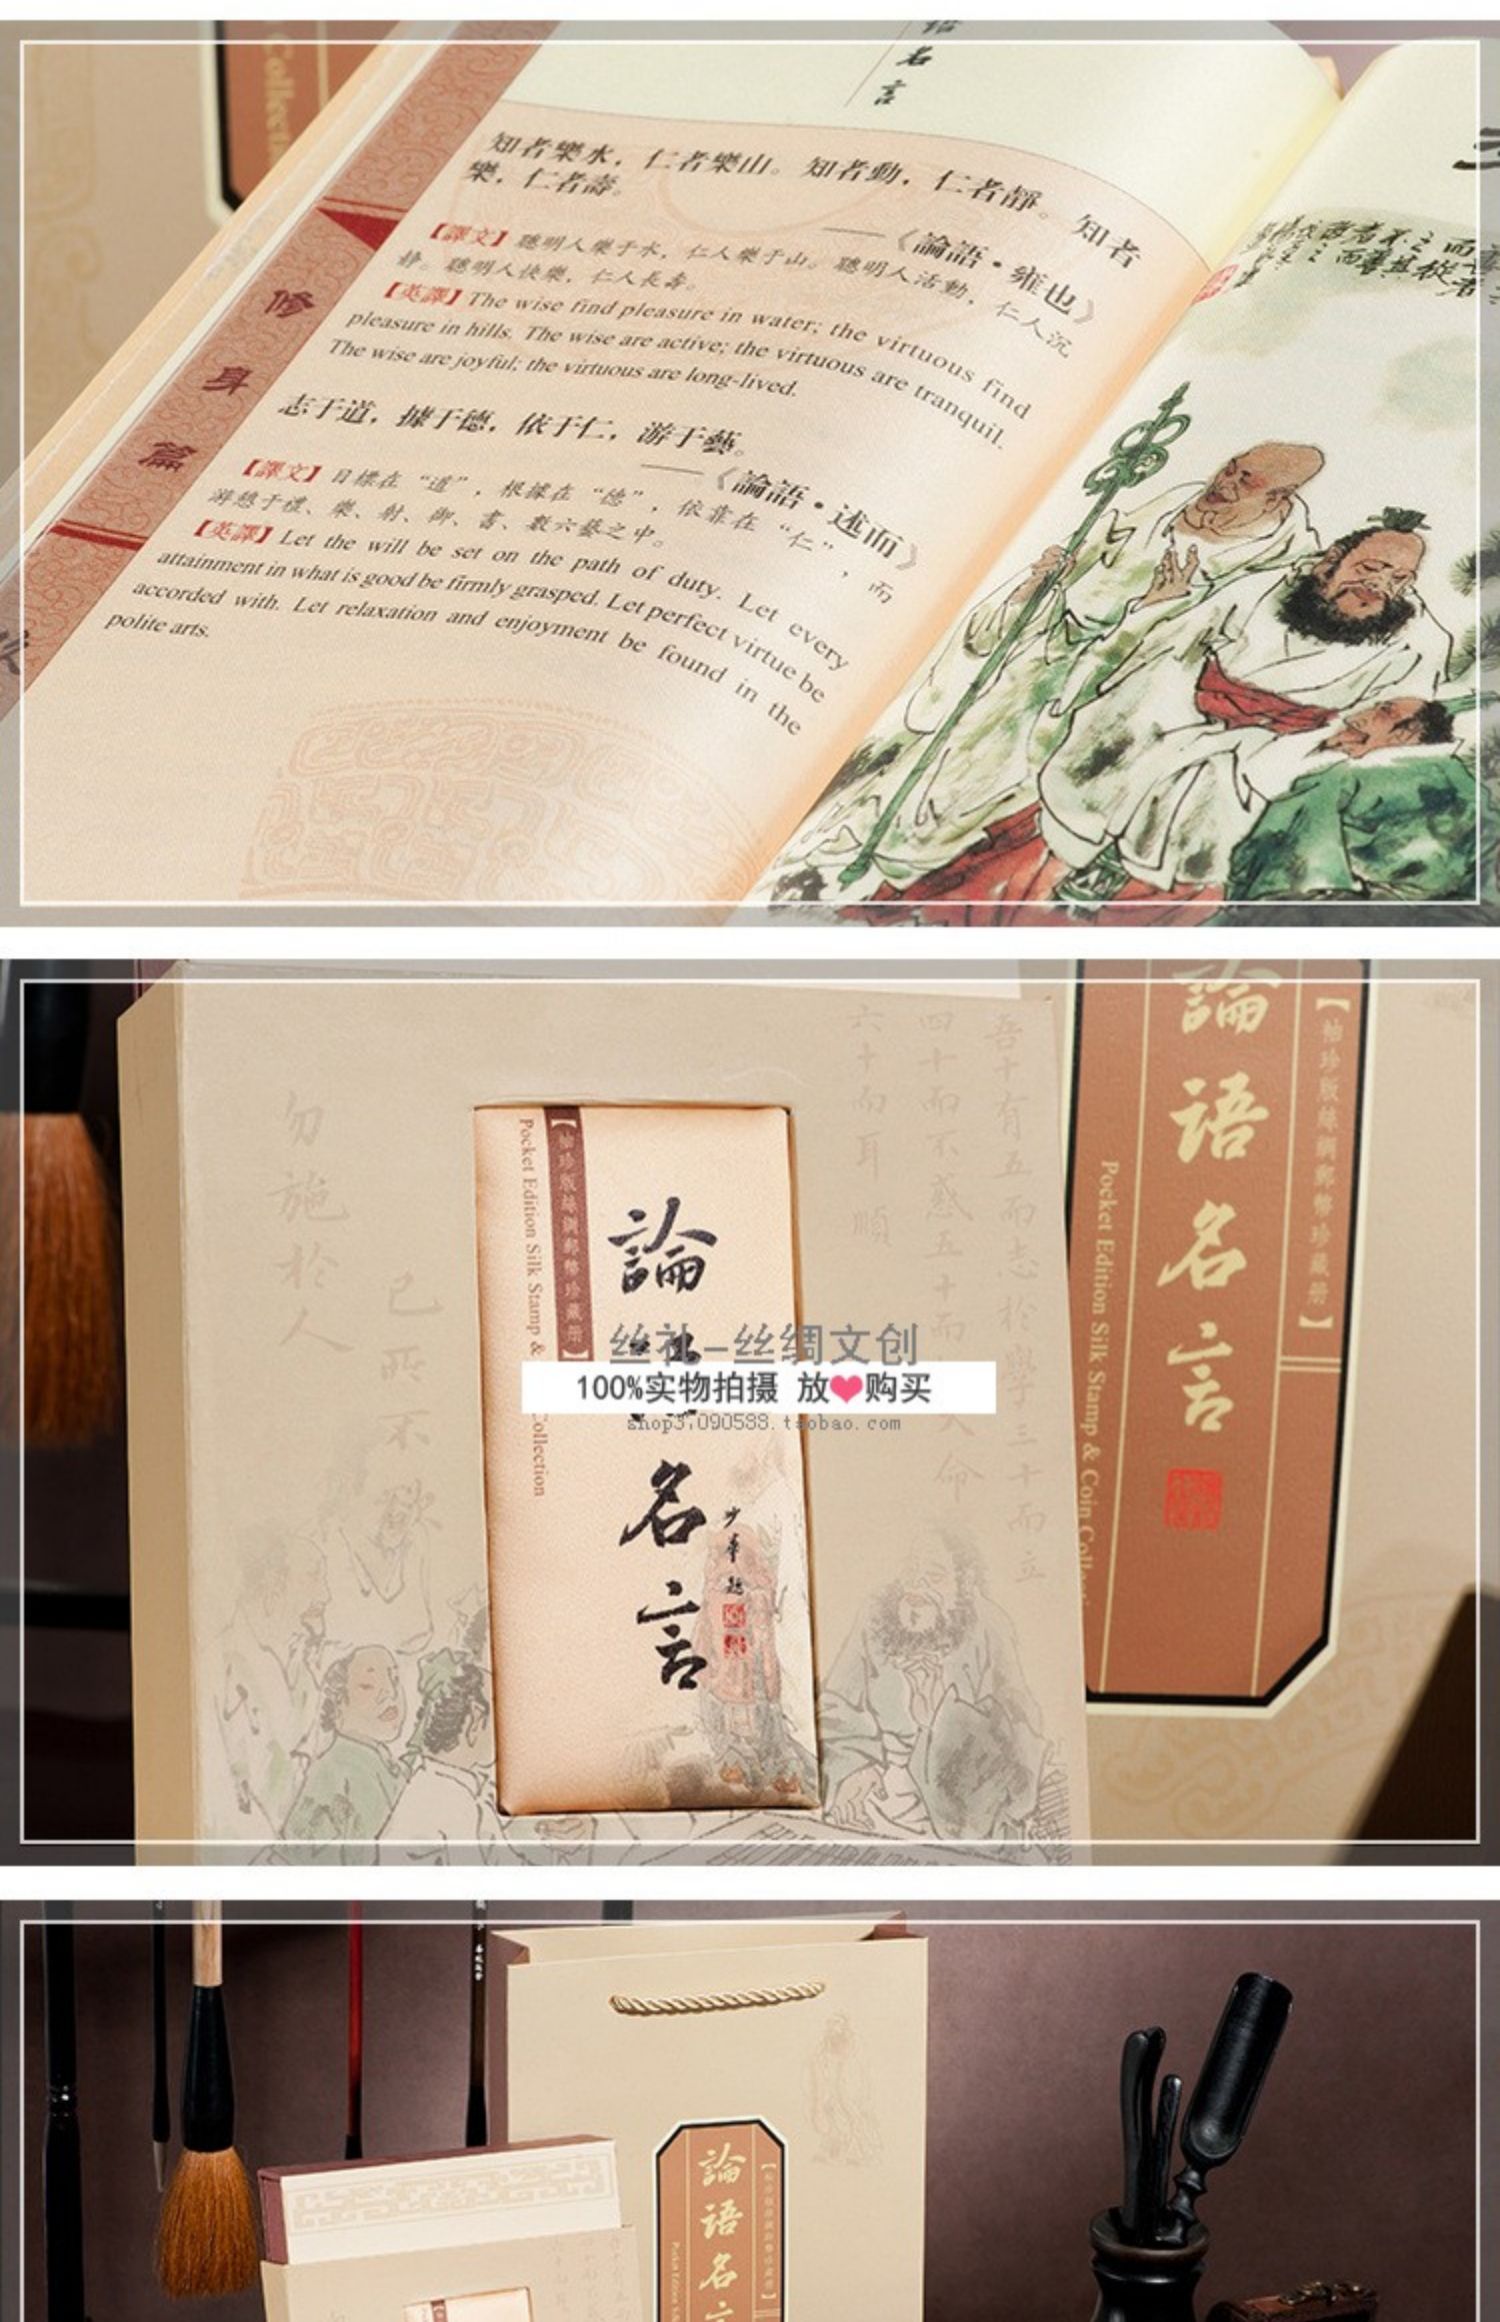 Collecti
語
名
言
知者樂水，仁者樂山。知者動，仁者靜。知者
樂，仁者壽。
——《論語·雍也》
【譯文】聰明人樂于水，仁人樂于山。聰明人活動，仁人沉
静。聰明人快樂，仁人長壽。
【英譯】The wise find pleasure in water; the virtuous find
pleasure in hills. The wise are active; the virtuous are tranquil.
The wise are joyful; the virtuous are long-lived.
志于道，據于德，依于仁，游于藝。
——《論語·述而》
【譯文】目標在“道”，根據在“德”，依靠在“仁”，而
游憩于禮、樂、射、御、書、數六藝之中。
【英譯】Let the will be set on the path of duty. Let every
attainment in what is good be firmly grasped. Let perfect virtue be
accorded with. Let relaxation and enjoyment be found in the
polite arts.
修身篇
吾十有五而志於學三十而立
四十而不惑五十而
六十而耳順
己所不欲
勿施於人
【袖珍版絲綢郵幣珍藏册】
Pocket Edition Silk Stamp &
Collection
論
名言
少華題
【袖珍版絲綢郵幣珍藏册】
論語名言
Pocket Edition Silk Stamp & Coin Colle
丝礼-丝绸文创
100%实物拍摄 放❤购买
論語名言